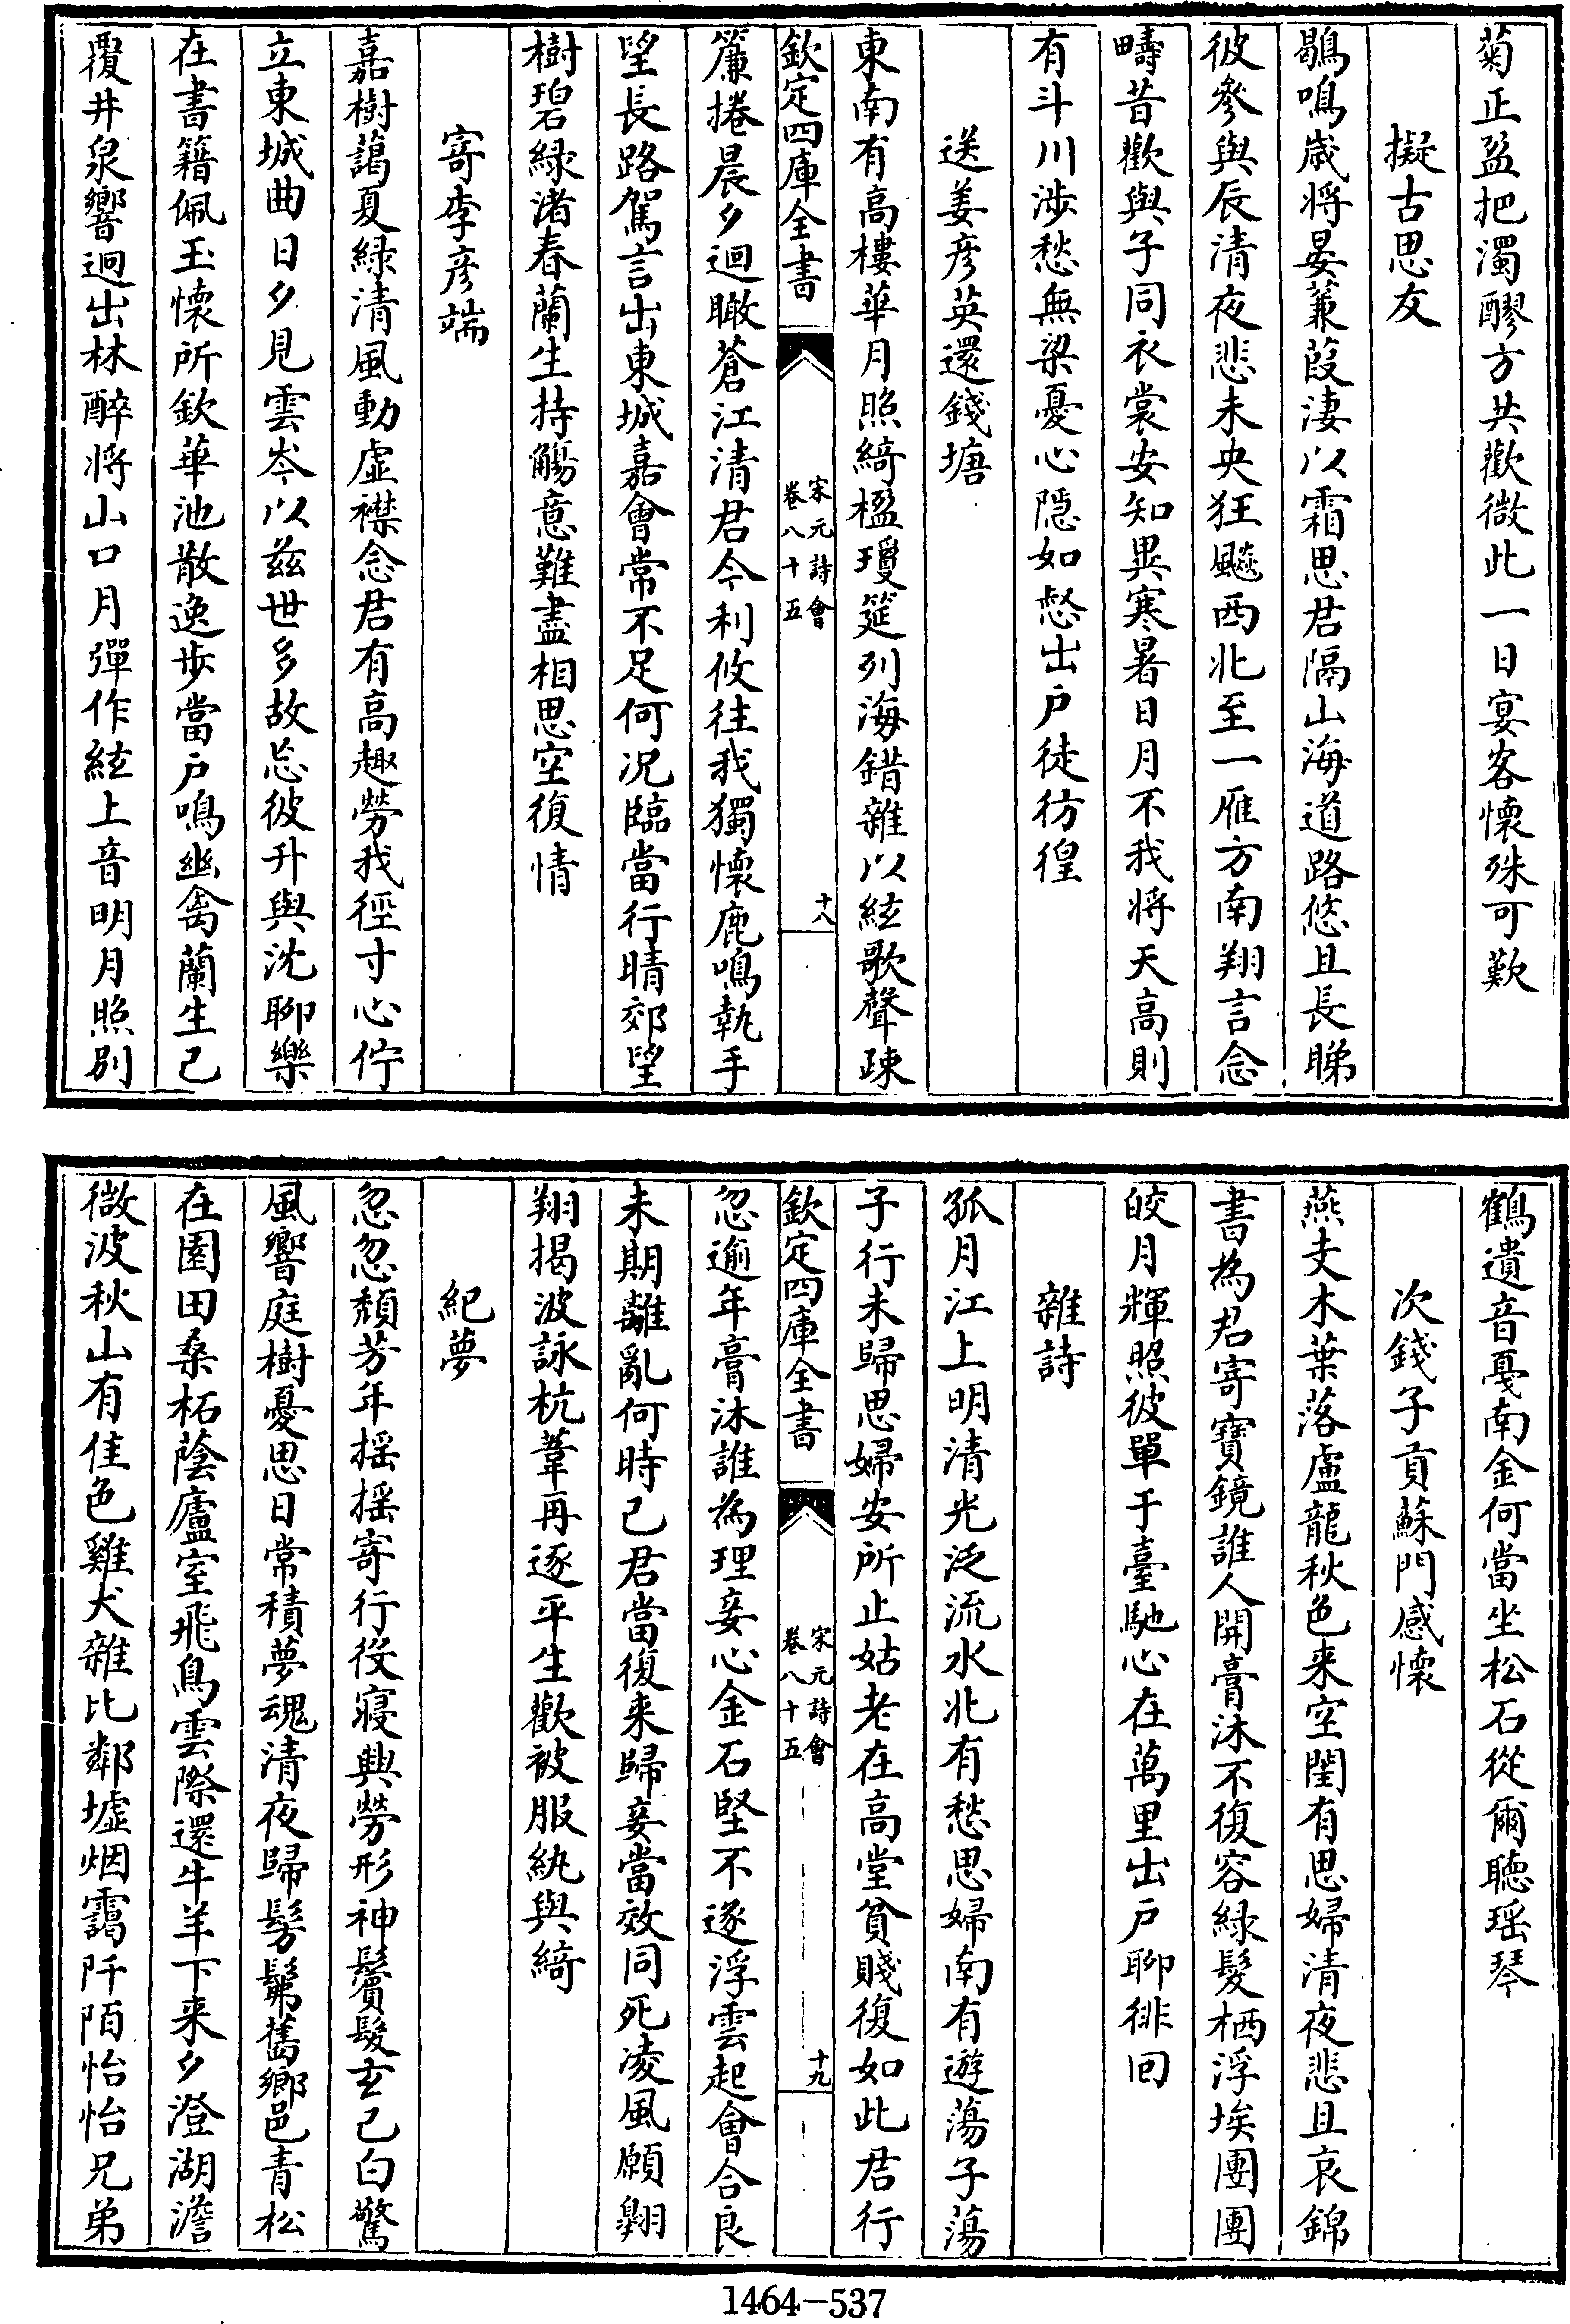 菊正盈把濁醪方共歡微此一日宴客懷殊可歎
擬古思友
鶡鳴歲将晏蒹葭淒以霜思君隔山海道路悠且長睇
彼參與辰清夜悲未央狂飈西北至一雁方南翔言念
疇昔歡與子同衣裳安知異寒暑日月不我将天高則
有斗川渉愁無梁憂心隠如惄出户徒彷徨
送姜彦英還錢塘
東南有高樓華月照綺楹瓊筵列海錯雜以絃歌聲疎
欽定四庫全書
宋元詩會
卷八十五
十八
簾捲晨夕迴瞰蒼江清君今利攸往我獨懷鹿鳴執手
望長路駕言出東城嘉會常不足何况臨當行晴郊望
樹碧緑渚春蘭生持觴意難盡相思空復情
寄李彦端
嘉樹藹夏緑清風動虚襟念君有高趣勞我徑寸心佇
立東城曲日夕見雲岑以兹世多故忘彼升與沈聊樂
在書籍佩玉懷所欽華池散逸步當户鳴幽禽蘭生已
覆井泉響迴出林醉将山口月彈作絃上音明月照别
鶴遺音戞南金何當坐松石從爾聴瑶琴
次錢子貢蘇門感懷
燕支木葉落盧龍秋色来空閨有思婦清夜悲且哀錦
書為君寄寶鏡誰人開膏沐不復容緑髮栖浮埃團團
皎月輝照彼單于臺馳心在萬里出户聊徘回
雜詩
孤月江上明清光泛流水北有愁思婦南有遊蕩子蕩
子行未歸思婦安所止姑老在高堂貧賤復如此君行
欽定四庫全書
宋元詩會
卷八十五
十九
忽逾年膏沐誰為理妾心金石堅不逐浮雲起會合良
未期離亂何時已君當復来歸妾當效同死凌風願翱
翔揭波詠杭葦再逐平生歡被服紈與綺
紀夢
忽忽頽芳年揺揺寄行役寝興勞形神鬢髮玄已白驚
風響庭樹憂思日常積夢魂清夜歸髣髴舊鄉邑青松
在園田桑柘蔭廬室飛鳥雲際還牛羊下来夕澄湖澹
微波秋山有佳色雞犬雜比鄰墟烟靄阡陌怡怡兄弟
1464-537